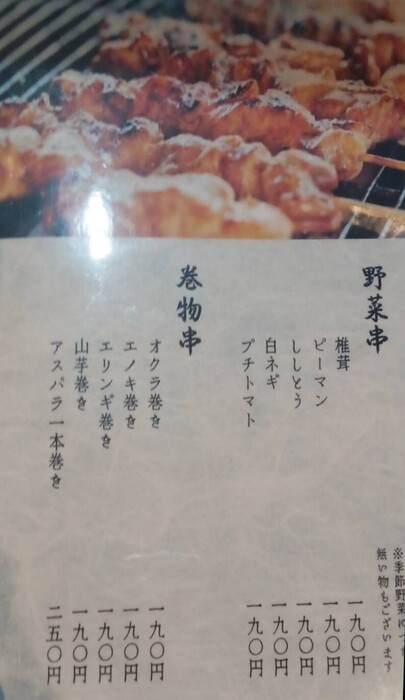 ※季節野菜に
無い物もございます
野菜串
椎茸 一九〇円
ピーマン 一九〇円
ししとう 一九〇円
白ネギ 一九〇円
プチトマト 一九〇円
巻物串
オクラ巻き 一九〇円
エノキ巻き 一九〇円
エリンギ巻き 一九〇円
山芋巻き 一九〇円
アスパラ一本巻き 二五〇円